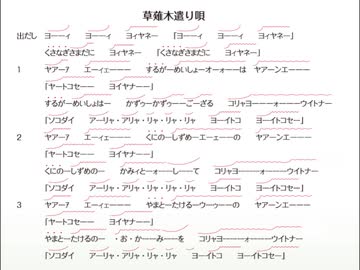 草薙木遣り唄
出だし ヨーーィ ヨーーィ ヨィヤネー 「ヨーーィ ヨーーィ ヨィヤネー」
くさなぎさまだに ヨィヤネー 「くさなぎさまだに ヨィヤネー」
1 ヤアーｱ エーィェーーー するがーめいしょーオーォーーは ヤアーンエーーー
「ヤートコセーー ヨイヤナーー」
するがーめいしょはー かずぅーかずぅーーごーざる コリャヨーーーォーーーウイトナー
「ソコダイ アーリャ・アリャ・リャ・リャ・リャ ヨーイトコ ヨーイトコセー」
2 ヤアーｱ エーィェーーー くにのーしずめーエーェーーの ヤアーンエーーー
「ヤートコセーー ヨイヤナーー」
くにのーしずめのー かみィとーォーしーーて コリャヨーーーォーーーウイトナー
「ソコダイ アーリャ・アリャ・リャ・リャ・リャ ヨーイトコ ヨーイトコセー」
3 ヤアーｱ エーィェーーー やまとーたけるーウーゥーーの ヤアーンエーーー
「ヤートコセーー ヨイヤナーー」
やまとーたけるのー ・お・かーーみーーを コリャヨーーーォーーーウイトナー
「ソコダイ アーリャ・アリャ・リャ・リャ・リャ ヨーイトコ ヨーイトコセー」